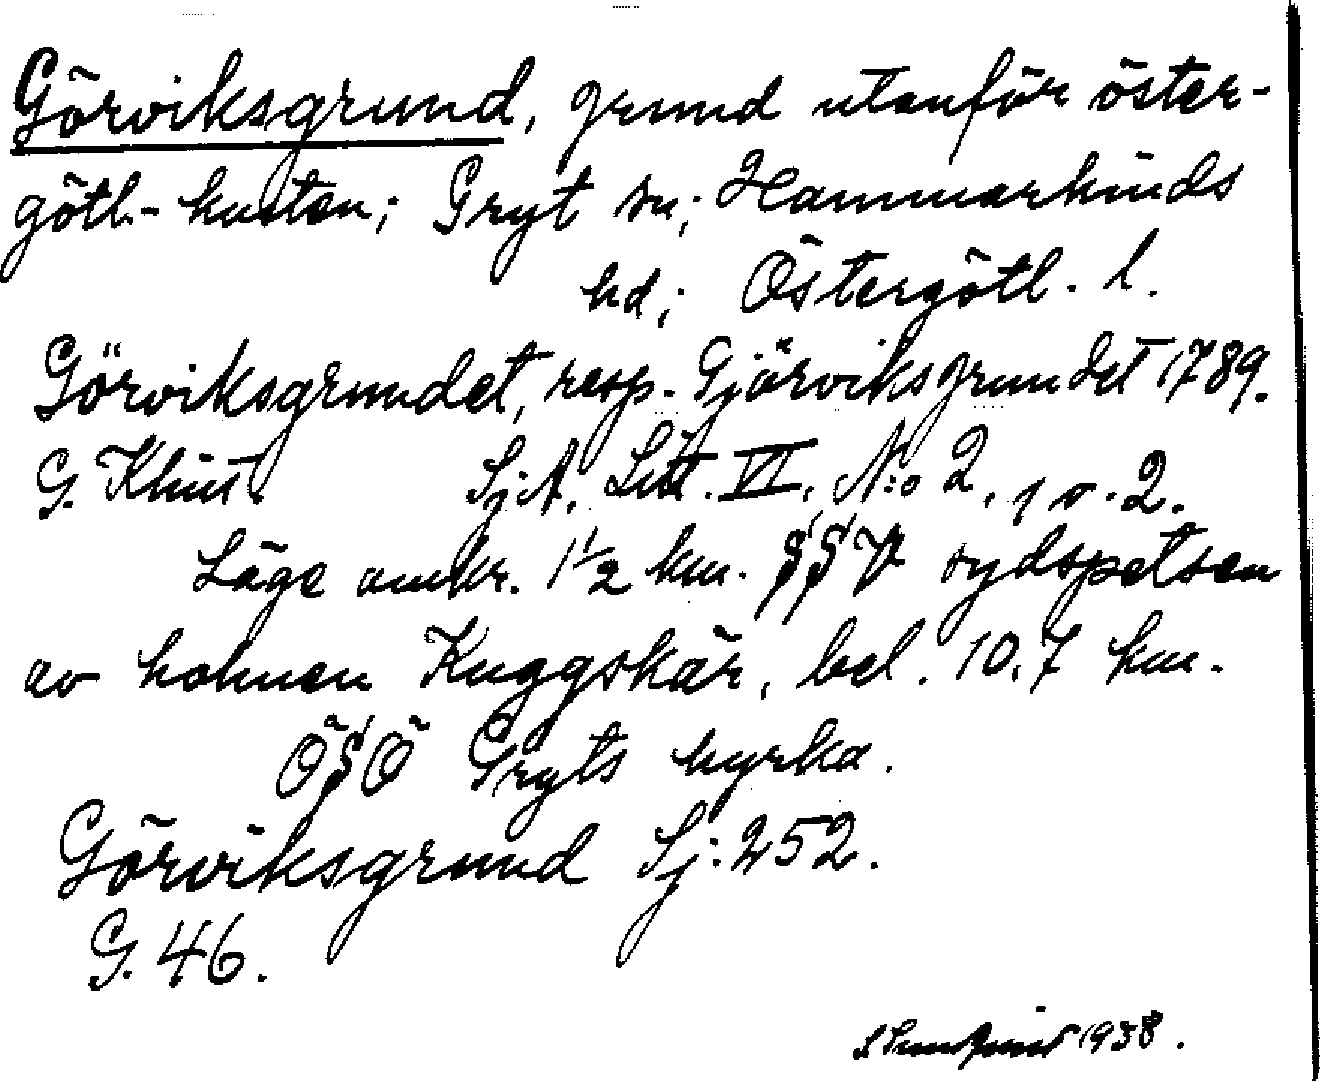 Görviksgrund, grund utanför öster-
götl-kusten; Gryt sn; Hammarkinds
hd; Östergötl. l.
Görviksgrundet, resp. Gjörviksgrundet 1789.
G. Klint. SjA, Litt. VI, N:o 2, 1 o. 2.
Läge omkr. 1 1/2 km. SSV sydspetsen
av holmen Kuggskär, bel. 10,7 km.
ÖSÖ Gryts kyrka.
Görviksgrund Sj: 252.
G. 46.
1938.